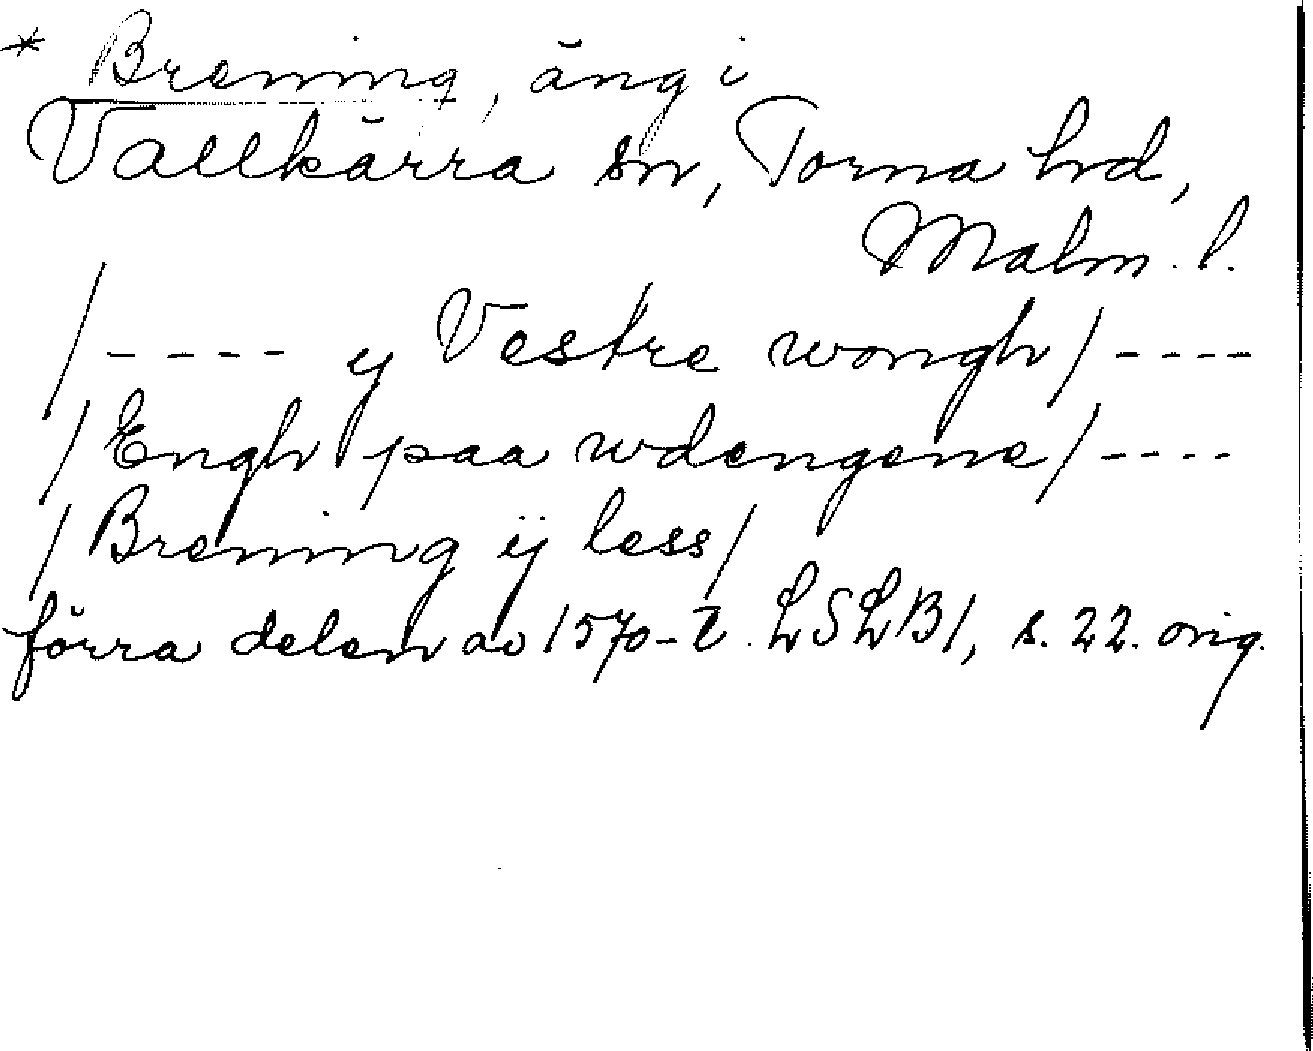 * Brening, äng i
Vallkärra sn, Torna hd,
Malm. l.
/---- y Vestre wongh/----
/Engh paa wdengene/----
/Brening ij less/
förra delen av 1570-t. LSLB1, s. 22. orig.